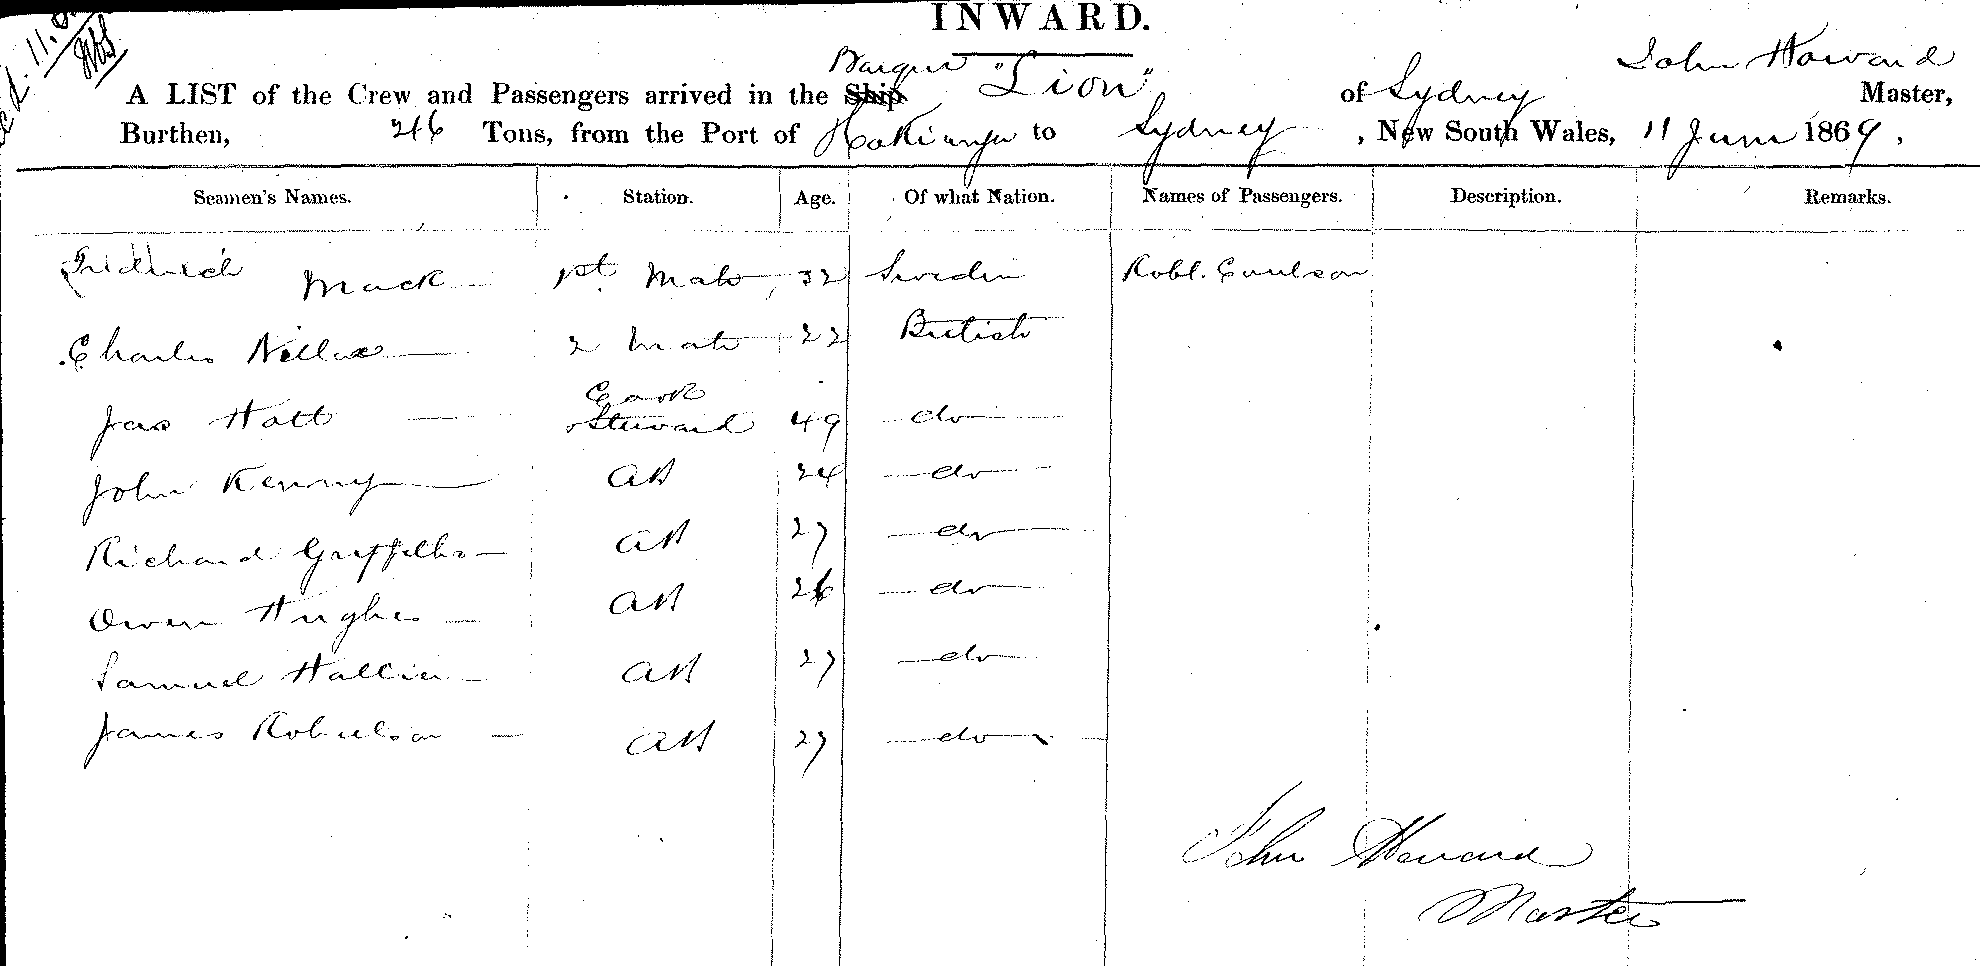 INWARD.
Barque "Lion" John Howard
A LIST of the Crew and Passengers arrived in the Ship of Sydney Master,
Burthen, 246 Tons, from the Port of Hokianga to Sydney, New South Wales, 11 June 1869.
Seamen's Names. Station. Age. Of what Nation. Names of Passengers. Description. Remarks.
Fredrich Mack 1st Mate 32 Sweden Robt. Coulson
Charles 2 Mate 22 British
Cook
Jas Hatt Steward 49 do
John Kenny AB 24 do
Richard Griffiths AB 27 do
Owen Hughes AB 26 do
Samuel AB 27 do
James Robertson AB 27 do
John Howard
Master